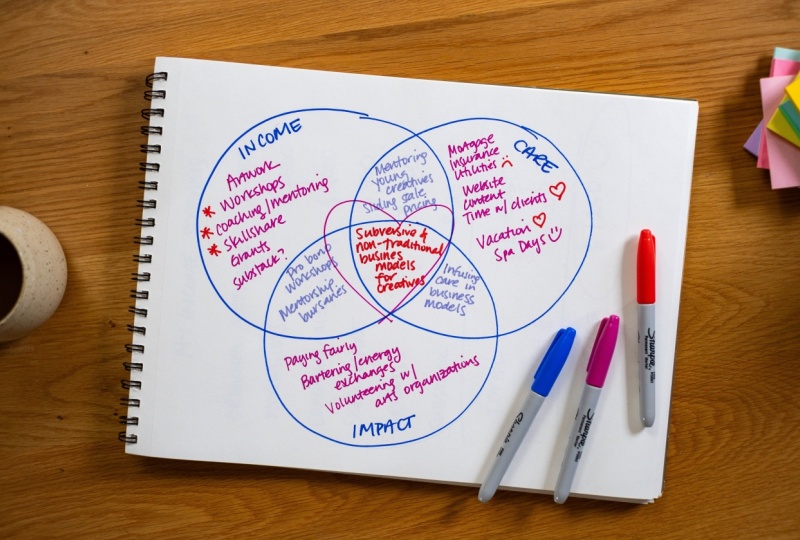 INCOME
Artwork
* Workshops
* Coaching/mentoring
* Skillshare
Grants
substack?
Mentoring
young
creatives
Sliding scale
pricing
CARE
Mortgage
Insurance
Utilities
Website
content
Time w/ clients
Vacation
Spa Days
Subversive &
non-traditional
busines
models
for
creatives
Pro bono
Workshops
Mentorship
bursaries
Infusing
care in
business
models
Paying fairly
Bartering/energy
exchanges
Volunteering w/
arts organizations
IMPACT
Sharpie
Sharpie
Sharpie